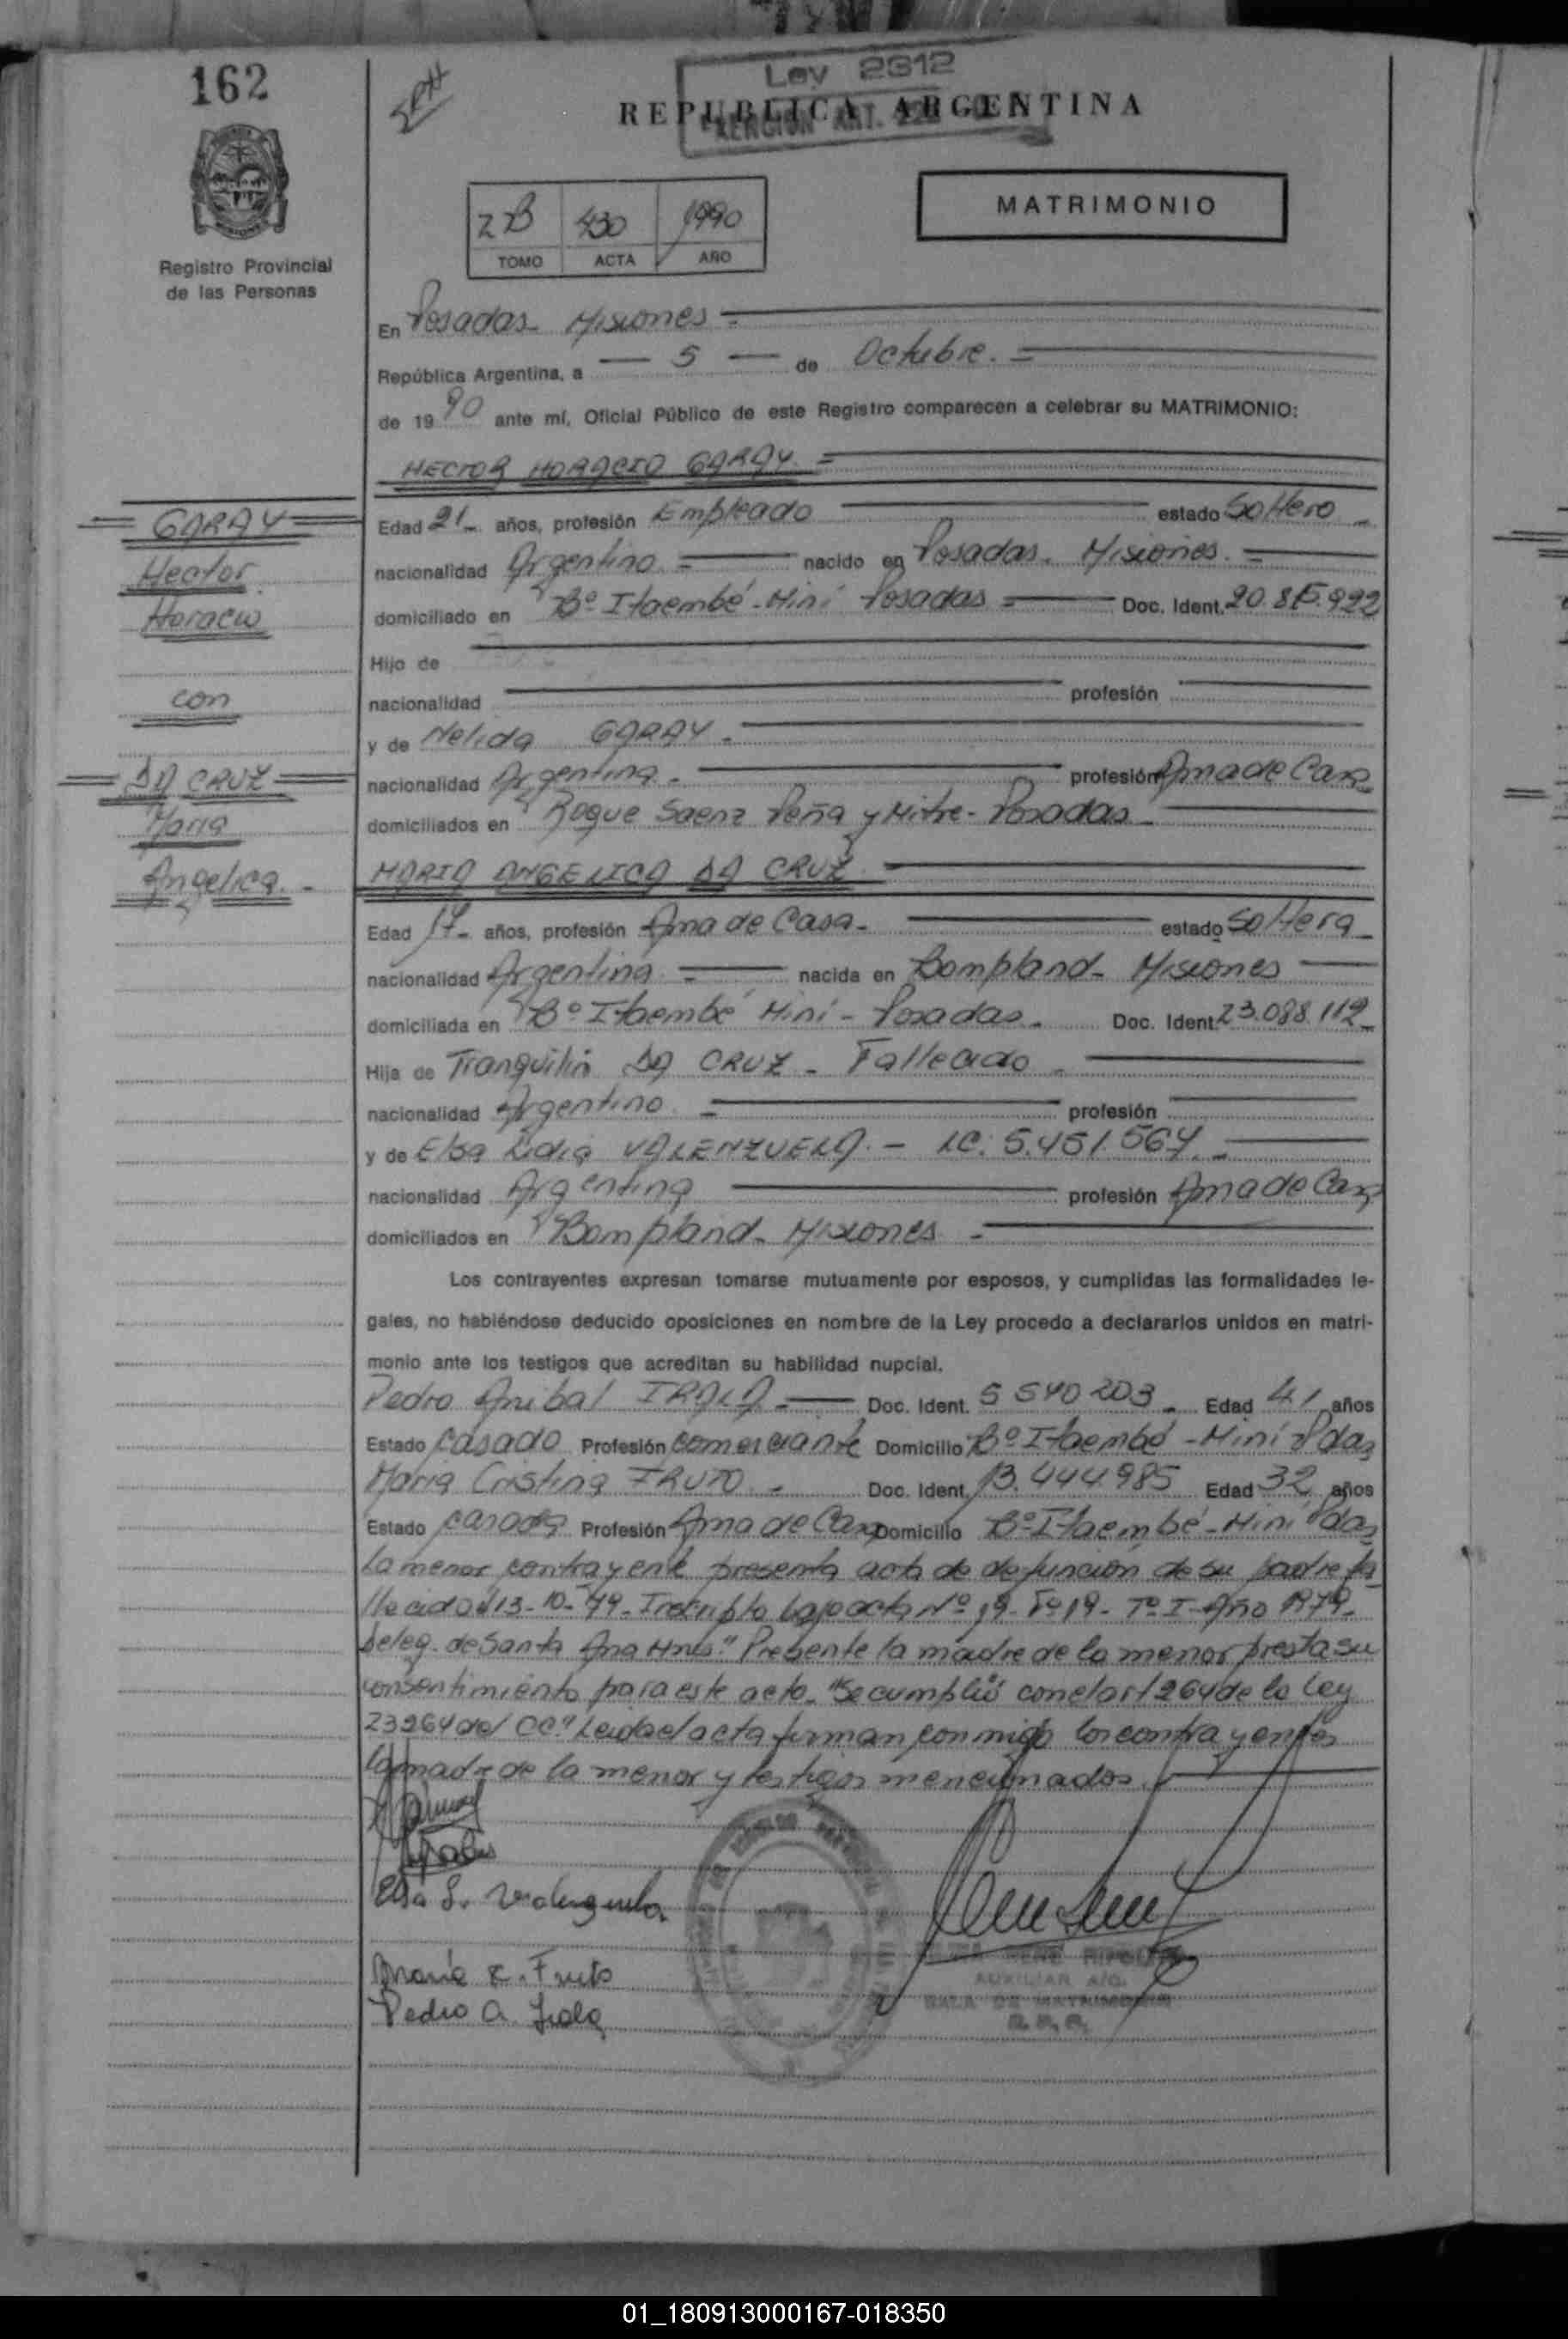 162
Ley 2312
EXENCION ART.
REPUBLICA ARGENTINA
MATRIMONIO
2B 430 1990
TOMO ACTA AÑO
Registro Provincial
de las Personas
En Posadas Misiones
República Argentina, a 5 de Octubre.
de 1990 ante mí, Oficial Público de este Registro comparecen a celebrar su MATRIMONIO:
HECTOR HORACIO GARAY
GARAY
Hector
Horacio
con
DA CRUZ
Maria
Angelica.
Edad 21 años, profesión Empleado estado Soltero
nacionalidad Argentino nacido en Posadas. Misiones.
domiciliado en Bº Itaembé-Miní Posadas Doc. Ident. 20.815.922
Hijo de
nacionalidad profesión
y de Nelida GARAY.
nacionalidad Argentina profesión Ama de Casa
domiciliados en Roque Saenz Peña y Mitre- Posadas
MARIA ANGELICA DA CRUZ
Edad 17 años, profesión Ama de Casa estado Soltera
nacionalidad Argentina nacida en Bompland- Misiones
domiciliada en Bº Itaembé Miní - Posadas. Doc. Ident. 23.088.112
Hija de Tranquilin DA CRUZ - Fallecido
nacionalidad Argentino profesión
y de Elsa Lidia VALENZUELA. - LC: 5.451.567.
nacionalidad Argentina profesión Ama de Casa
domiciliados en Bompland- Misiones
Los contrayentes expresan tomarse mutuamente por esposos, y cumplidas las formalidades le-
gales, no habiéndose deducido oposiciones en nombre de la Ley procedo a declararlos unidos en matri-
monio ante los testigos que acreditan su habilidad nupcial.
Pedro Anibal IRALA. Doc. Ident. 5 540 203 Edad 41 años
Estado Casado Profesión comerciante Domicilio Bº Itaembé-Miní Pdas
Maria Cristina FRUTO. Doc. Ident. 13.444.985 Edad 32 años
Estado casada Profesión Ama de Casa Domicilio Bº Itaembé-Miní Pdas
La menor contrayente presenta acta de defunción de su padre fa
llecido el 13-10-79- Inscripta bajo acta Nº 19- Fº 19- Tº I- Año 1979-
Deleg. de Santa Ana Mnes." Presente la madre de la menor presta su
consentimiento para este acto. "Se cumplió con el art 264 de la Ley
23264 del CC." Leida el acta firman conmigo los contrayentes
la madre de la menor y testigos mencionados.
Elsa L. Valenzuela
María C. Fruto
Pedro A. Irala
AUXILIAR A/C.
SALA DE MATRIMONIO
01_180913000167-018350